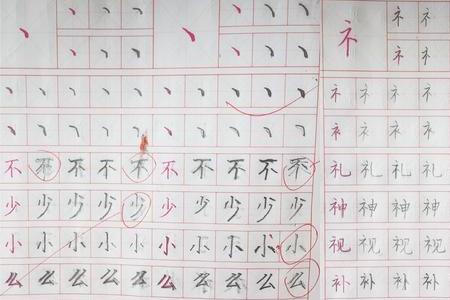 丶 丶 丶 丶 丶 丶 丶 丶 礻 礻 礻
丶 丶 丶 丶 丶 丶 礻 礻
丶 丶 丶 丶 丶 丶 丶 丶 丶 丶 礻 礻 礻 礻
丶 丶 丶 丶 丶 丶 丶 丶 丶 丶 衤 衤 衤 衤
不 不 不 不 不 不 不 不 不 不 礼 礼 礼 礼
少 少 少 少 少 少 少 少 少 少 神 神 神 神
小 小 小 小 小 小 小 小 小 小 视 视 视 视
么 么 么 么 么 么 么 么 么 么 补 补 补 补